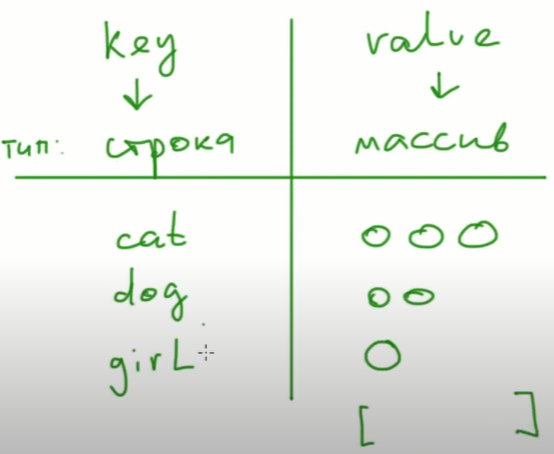 key value
тип: строка массив
cat
dog
girL
[ ]